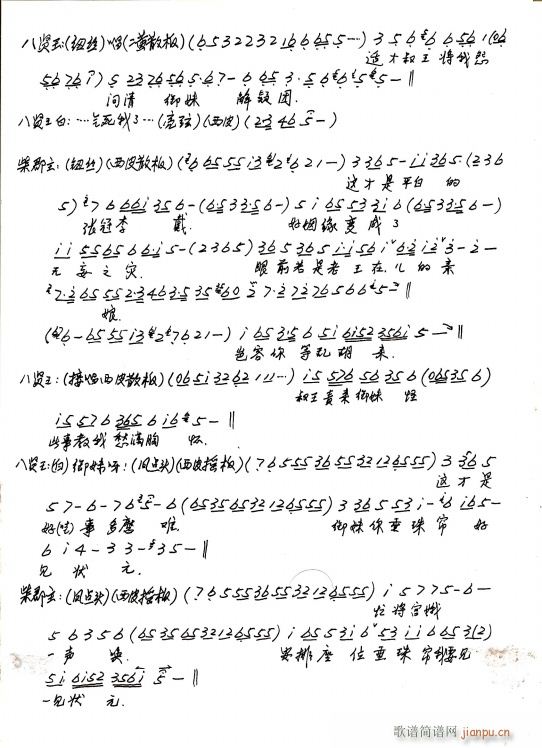 八贤王:(纽丝)唱(二黄散板)(6 5 3 2 2 3 2 1 6 6 6 5 5 ···) 3 5 6 6 6 5 6 1 (06
这才叔王将我怨
5 6 7 6 7) 5 2 3 7 6 5 6 5·6 7 - 6 6 5 3·5 6 6 5 5 - ‖
问清 御妹 解疑团.
八贤王白: ···气死我了···(原弦)(西皮)(2 3 4 6 5 -)
柴郡主:(纽丝)(西皮散板)(6 6 5 5 5 i 3 2 6 2 1 -) 3 3 6 5 - i i 3 6 5·(2 3 6
这才是平白 的
5) 7 6 6 6 i 3 5 6 - (6 5 3 3·5 6 -) 5 i 6 5 5 3 2 i 6 (6 5 3 3 5 6 -)
张冠李 戴. 好姻缘变成了
i i 5 5 6 5 6 6 i 5 - (2 3 6 5) 3 6 5 3 6 5 i·i 5 6 i 6·2 i 2 3 - 2 -
无妄之灾. 眼前若是老王在,儿的亲
7·2 6 5 5 5 2·3 4 6 3·5 3 5 6 0 2 7·2 7 2 7 6 5 6 6 5 - ‖
娘.
(6 - 6 5 5 5 i 3 2 7 6 2 1 -) i 6 5 3·5 6 5 i 6 i 5 2 3 5 6 i 5 - ‖
岂容你等乱胡 来.
八贤王:(接唱西皮散板)(0 6 5 i 3 2 6 2 1 1 1 ···) i 5 5 7 6 5 6 3 5 6 (0 6 5 3 5 6)
叔王责来御妹 怪
i 5 5 7 6 3 6 5 6 i 6 5 - ‖
此事教我愁满胸 怀.
八贤王:(白)御妹呀:(凤点头)(西皮摇板)(7 6 5 5 5 3 6 5 5 3 2 1 2 6 5 5 5) 3 3 6 5
这才是
5 7 - 6 - 7 6 5 - 6 (6 5 3 5 6 5 3 2 1 2 6 5 5 5) 3 3 6 5 5 3 i - 6 i 6 5 -
好(哇)事多磨 难. 御妹你垂珠帘 好
6 i 4 - 3 3 - 3 5 - ‖
见状 元.
柴郡主:(凤点头)(西皮摇板)(7 6 5 5 5 3 6 5 5 3 2 1 2 6 5 5 5) i 5 7 7 5 - 6 -
忙将宫娥
5 6 3 5 6 (6 5 3 5 6 5 3 2 1 2 6 5 5 5) i 6 5 3 i 6 5 3 i i 6 6 5 3 (2)
一声 唤. 安排座 位垂珠 帘我要见
5 i 6 i 5 2 3 5 6 i 5 - ‖
一见状 元.
歌谱简谱网
jianpu.cn